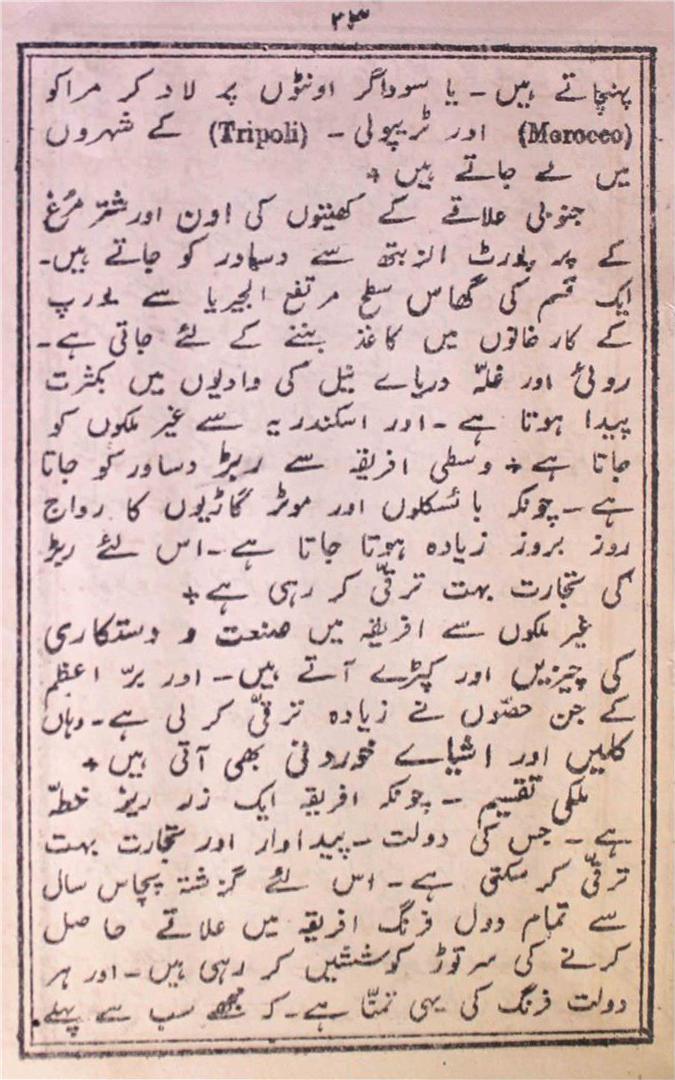 ۲۳
پہنچاتے ہیں ۔ یا سوداگر اونٹوں پر لاد کر مراکو
(Moroceo) اور ٹریپولی ۔ (Tripoli) کے شہروں
میں لے جاتے ہیں +
جنوبی علاقے کے کھیتوں کی اون اور شتر مرغ
کے پر پورٹ الزبتھ سے دساور کو جاتے ہیں۔
ایک قسم کی گھاس سطح مرتفع الجیریا سے یورپ
کے کارخانوں میں کاغذ بننے کے لئے جاتی ہے۔
روئی اور غلّہ دریاے نیل کی وادیوں میں بکثرت
پیدا ہوتا ہے ۔ اور اسکندریہ سے غیر ملکوں کو
جاتا ہے + وسطی افریقہ سے ربڑ دساور کو جاتا
ہے ۔ چونکہ بائسکلوں اور موٹر گاڑیوں کا رواج
روز بروز زیادہ ہوتا جاتا ہے ۔ اس لئے ربڑ
کی تجارت بہت ترقّی کر رہی ہے +
غیر ملکوں سے افریقہ میں صنعت و دستکاری
کی چیزیں اور کپڑے آتے ہیں ۔ اور برّ اعظم
کے جن حصّوں نے زیادہ ترقّی کر لی ہے ۔ وہاں
کلیں اور اشیاے خوردنی بھی آتی ہیں +
ملکی تقسیم ۔ چونکہ افریقہ ایک زر ریز خطّہ
ہے ۔ جس کی دولت ۔ پیداوار اور تجارت بہت
ترقّی کر سکتی ہے ۔ اس لئے گزشتہ پچاس سال
سے تمام دول فرنگ افریقہ میں علاقے حاصل
کرنے کی سر توڑ کوششیں کر رہی ہیں ۔ اور ہر
دولت فرنگ کی یہی تمنّا ہے ۔ کہ مجھے سب سے پہلے